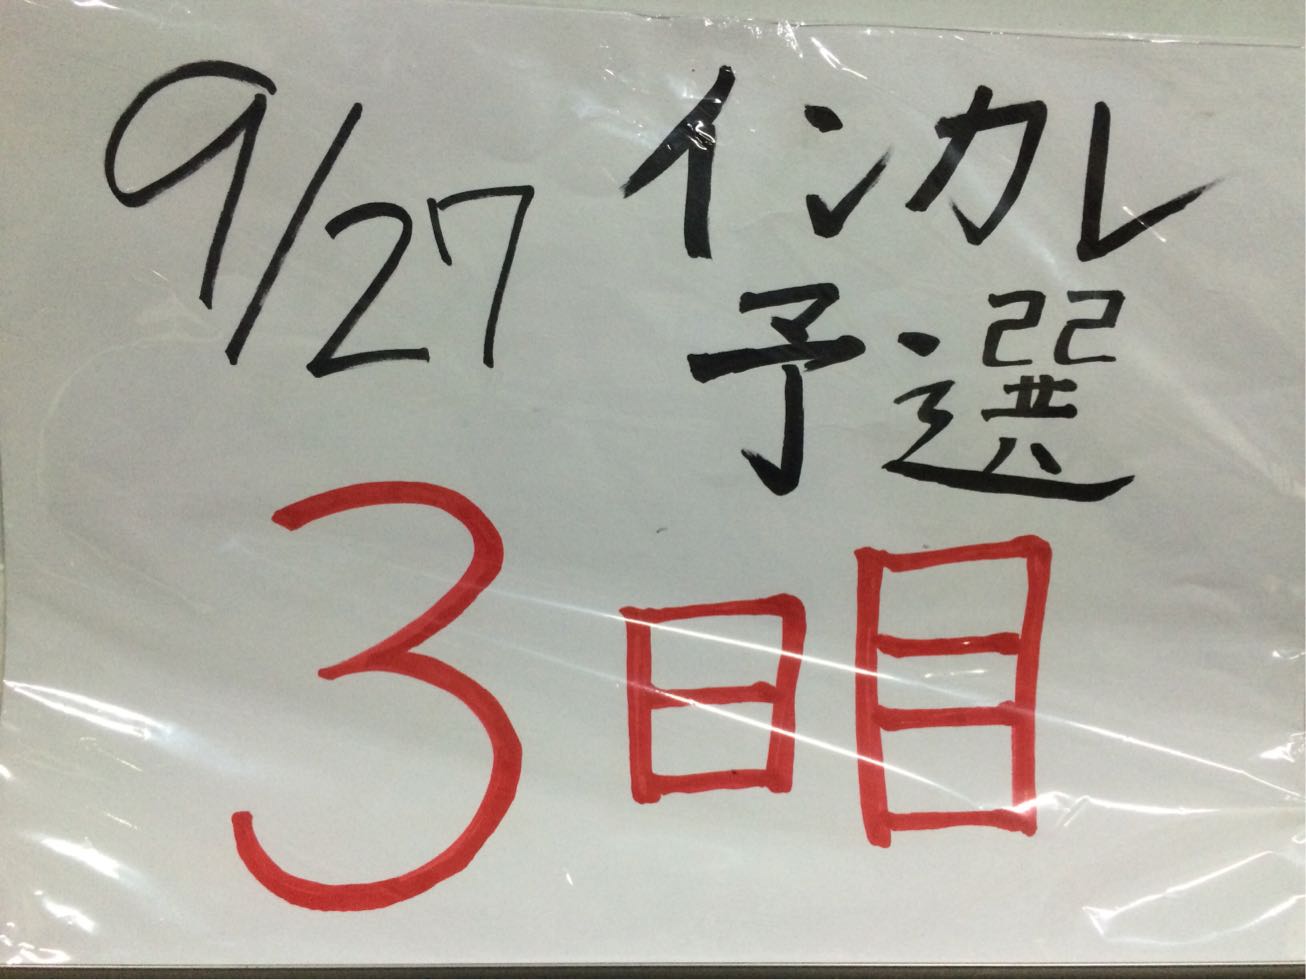 9/27 インカレ
予選
3日目